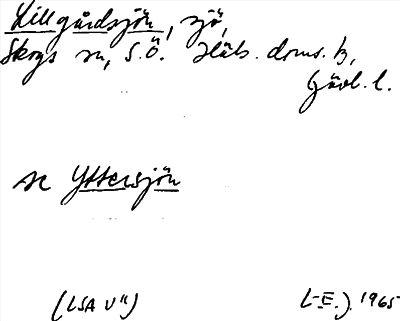 Lillgårdsjön, sjö,
Skogs sn, S.Ö. Häls. doms. b,
Gävl. l.
se Yttersjön
(LSA V")
L-E.). 1965